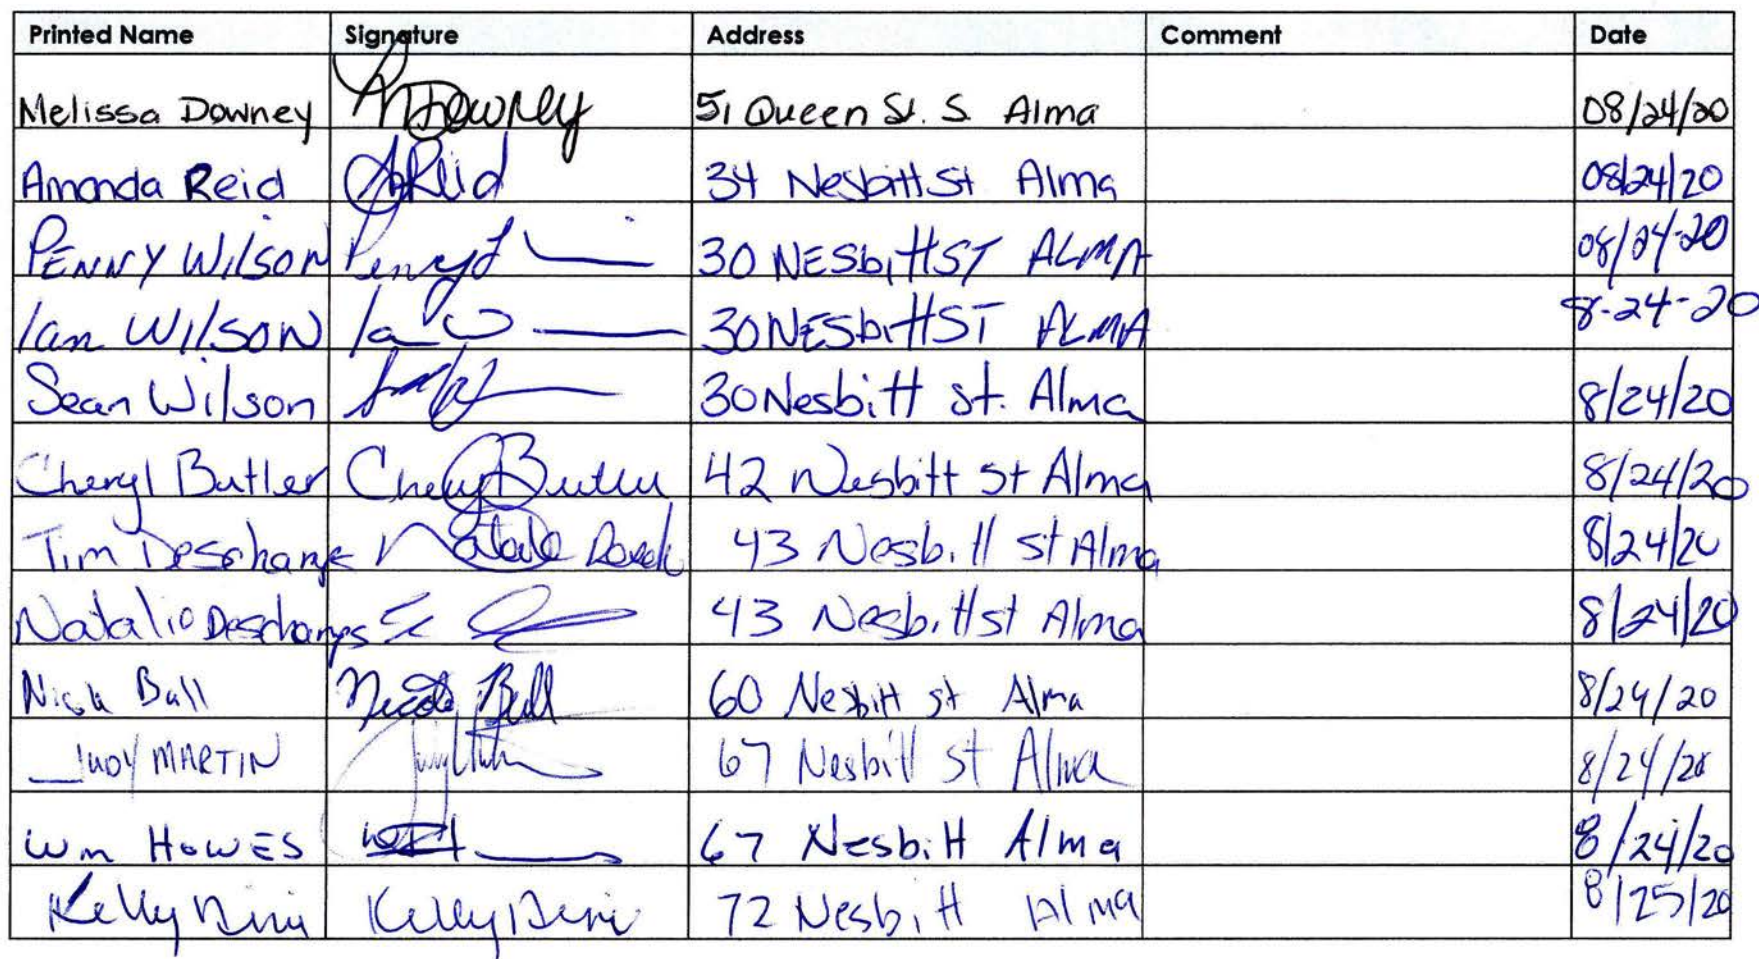 Printed Name Signature Address Comment Date
Melissa Downey MDowney 51 Queen St. S. Alma 08/24/20
Amanda Reid AReid 34 Nesbitt St Alma 08/24/20
PENNY WILSON 30 NESbitt ST ALMA 08/24-20
Ian WILSON 30 NESbitt ST ALMA 8-24-20
Sean Wilson 30 Nesbitt st. Alma 8/24/20
Cheryl Butler Cheryl Butler 42 Nesbitt St Alma 8/24/20
Tim Deschamps Natalie 43 Nesbitt st Alma 8/24/20
Natalie Deschamps 43 Nesbitt st Alma 8/24/20
Ball 60 Nesbitt st Alma 8/24/20
JUDY MARTIN 67 Nesbitt st Alma 8/24/20
Wm HOWES 67 Nesbitt Alma 8/24/20
Kelly Kelly 72 Nesbitt Alma 8/25/20